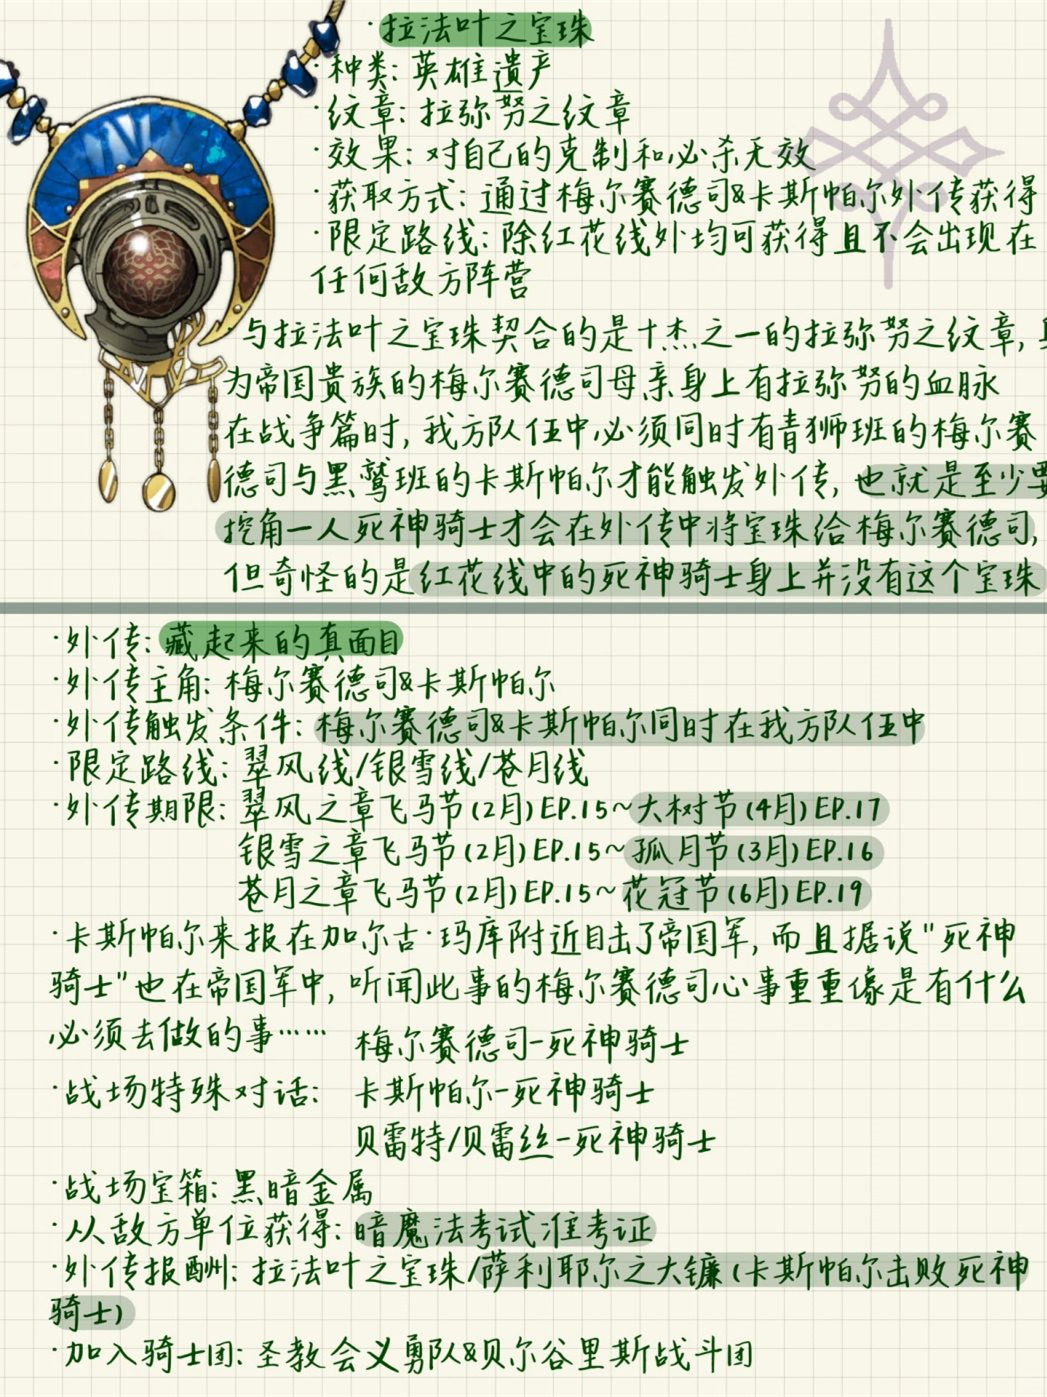 ·拉法叶之宝珠
·种类: 英雄遗产
·纹章: 拉弥努之纹章
·效果: 对自己的克制和必杀无效
·获取方式: 通过梅尔赛德司&卡斯帕尔外传获得
·限定路线: 除红花线外均可获得且不会出现在
任何敌方阵营
与拉法叶之宝珠契合的是十杰之一的拉弥努之纹章,
为帝国贵族的梅尔赛德司母亲身上有拉弥努的血脉
在战争篇时, 我方队伍中必须同时有青狮班的梅尔赛
德司与黑鹫班的卡斯帕尔才能触发外传, 也就是至少要
挖角一人死神骑士才会在外传中将宝珠给梅尔赛德司,
但奇怪的是红花线中的死神骑士身上并没有这个宝珠
·外传: 藏起来的真面目
·外传主角: 梅尔赛德司&卡斯帕尔
·外传触发条件: 梅尔赛德司&卡斯帕尔同时在我方队伍中
·限定路线: 翠风线/银雪线/苍月线
·外传期限: 翠风之章飞马节(2月)EP.15~大树节(4月)EP.17
银雪之章飞马节(2月)EP.15~孤月节(3月)EP.16
苍月之章飞马节(2月)EP.15~花冠节(6月)EP.19
·卡斯帕尔来报在加尔古·玛库附近目击了帝国军, 而且据说"死神
骑士"也在帝国军中, 听闻此事的梅尔赛德司心事重重像是有什么
必须去做的事……
梅尔赛德司-死神骑士
·战场特殊对话: 卡斯帕尔-死神骑士
贝雷特/贝雷丝-死神骑士
·战场宝箱: 黑暗金属
·从敌方单位获得: 暗魔法考试准考证
·外传报酬: 拉法叶之宝珠/萨利耶尔之大镰(卡斯帕尔击败死神
骑士)
·加入骑士团: 圣教会义勇队&贝尔谷里斯战斗团